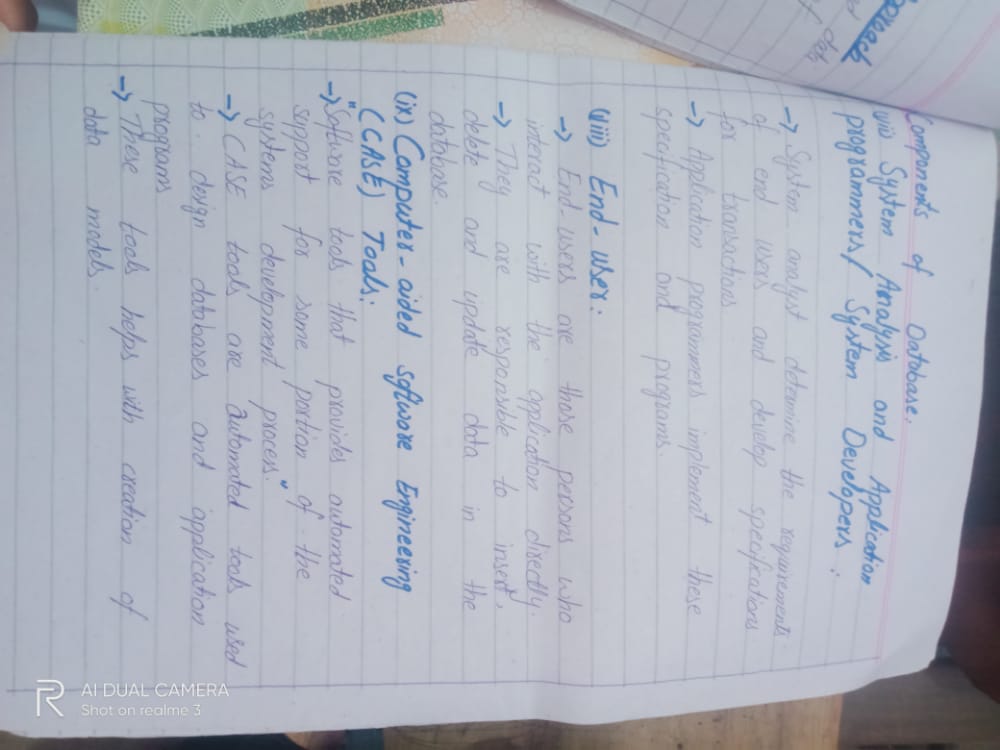 Components of Database.
(vii) System Analysis and Application
programmers / System Developers :
→ System analyst determine the requirements
of end users and develop specifications
for transactions
→ Application programmers implement these
specification and programs.
(viii) End-user:
→ End-users are those persons who
interact with the application directly.
→ They are responsible to insert,
delete and update data in the
database.
(ix) Computer-aided software Engineering
(CASE) Tools:
→ "Software tools that provides automated
support for some portion of the
systems development process."
→ CASE tools are automated tools used
to design databases and application
programs
→ These tools helps with creation of
data models.
R
AI DUAL CAMERA
Shot on realme 3